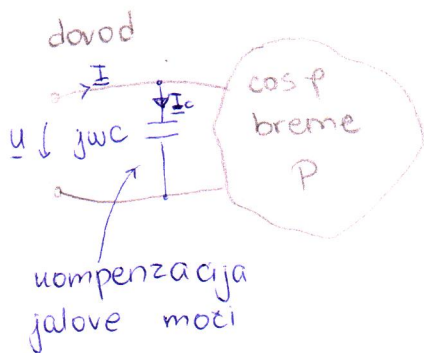 dovod
I
cos φ
Ic
U
jωC
breme
P
kompenzacija
jalove moči